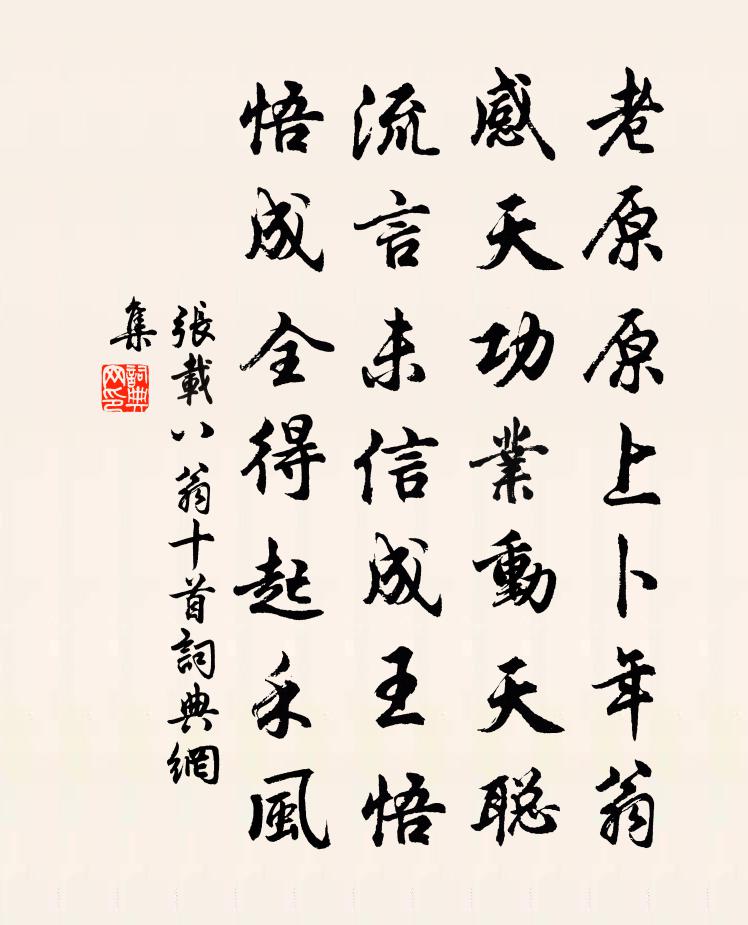 老原原上卜年翁
感天功業動天聡
流言未信成王悟
悟成全得起禾風
張載八翁十首詞典網
集
詞典
网印